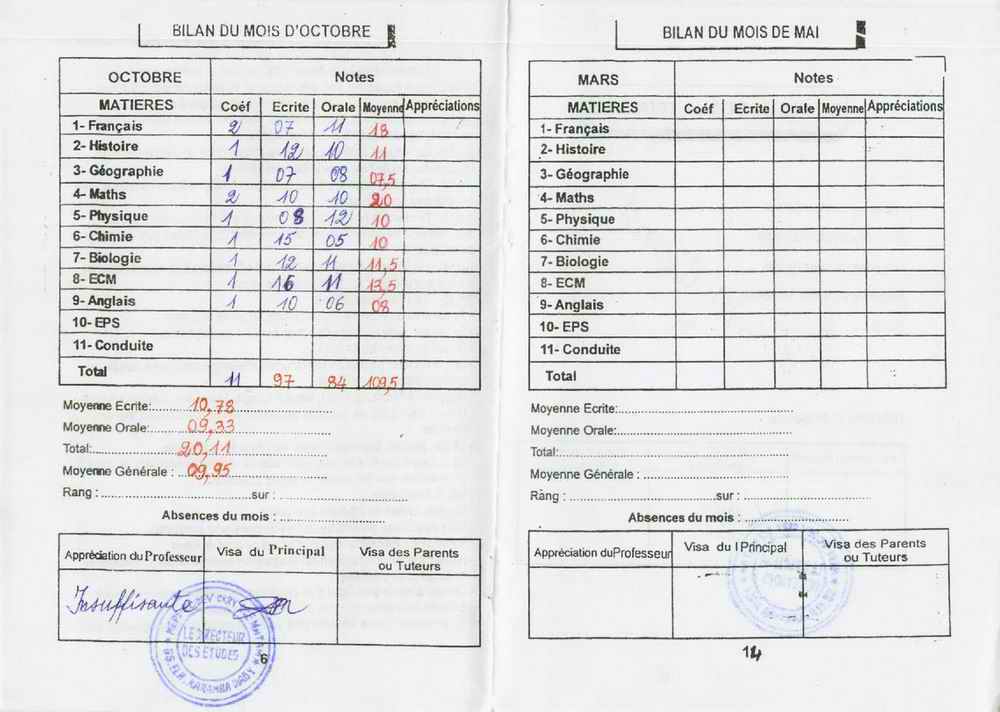 BILAN DU MOIS D'OCTOBRE
OCTOBRE Notes
MATIERES Coéf Ecrite Orale Moyenne Appréciations
1- Français 2 07 11 18
2- Histoire 1 12 10 11
3- Géographie 1 07 08 07,5
4- Maths 2 10 10 20
5- Physique 1 08 12 10
6- Chimie 1 15 05 10
7- Biologie 1 12 11 11,5
8- ECM 1 16 11 13,5
9- Anglais 1 10 06 08
10- EPS
11- Conduite
Total 11 97 84 109,5
Moyenne Ecrite: 10,78
Moyenne Orale: 09,33
Total: 20,11
Moyenne Générale : 09,95
Rang : sur :
Absences du mois :
Appréciation du Professeur Visa du Principal Visa des Parents ou Tuteurs
Insuffisante
LE DIRECTEUR
DES ETUDES
6
BILAN DU MOIS DE MAI
MARS Notes
MATIERES Coéf Ecrite Orale Moyenne Appréciations
1- Français
2- Histoire
3- Géographie
4- Maths
5- Physique
6- Chimie
7- Biologie
8- ECM
9- Anglais
10- EPS
11- Conduite
Total
Moyenne Ecrite:
Moyenne Orale:
Total:
Moyenne Générale :
Rang : sur :
Absences du mois :
Appréciation du Professeur Visa du l Principal Visa des Parents ou Tuteurs
14